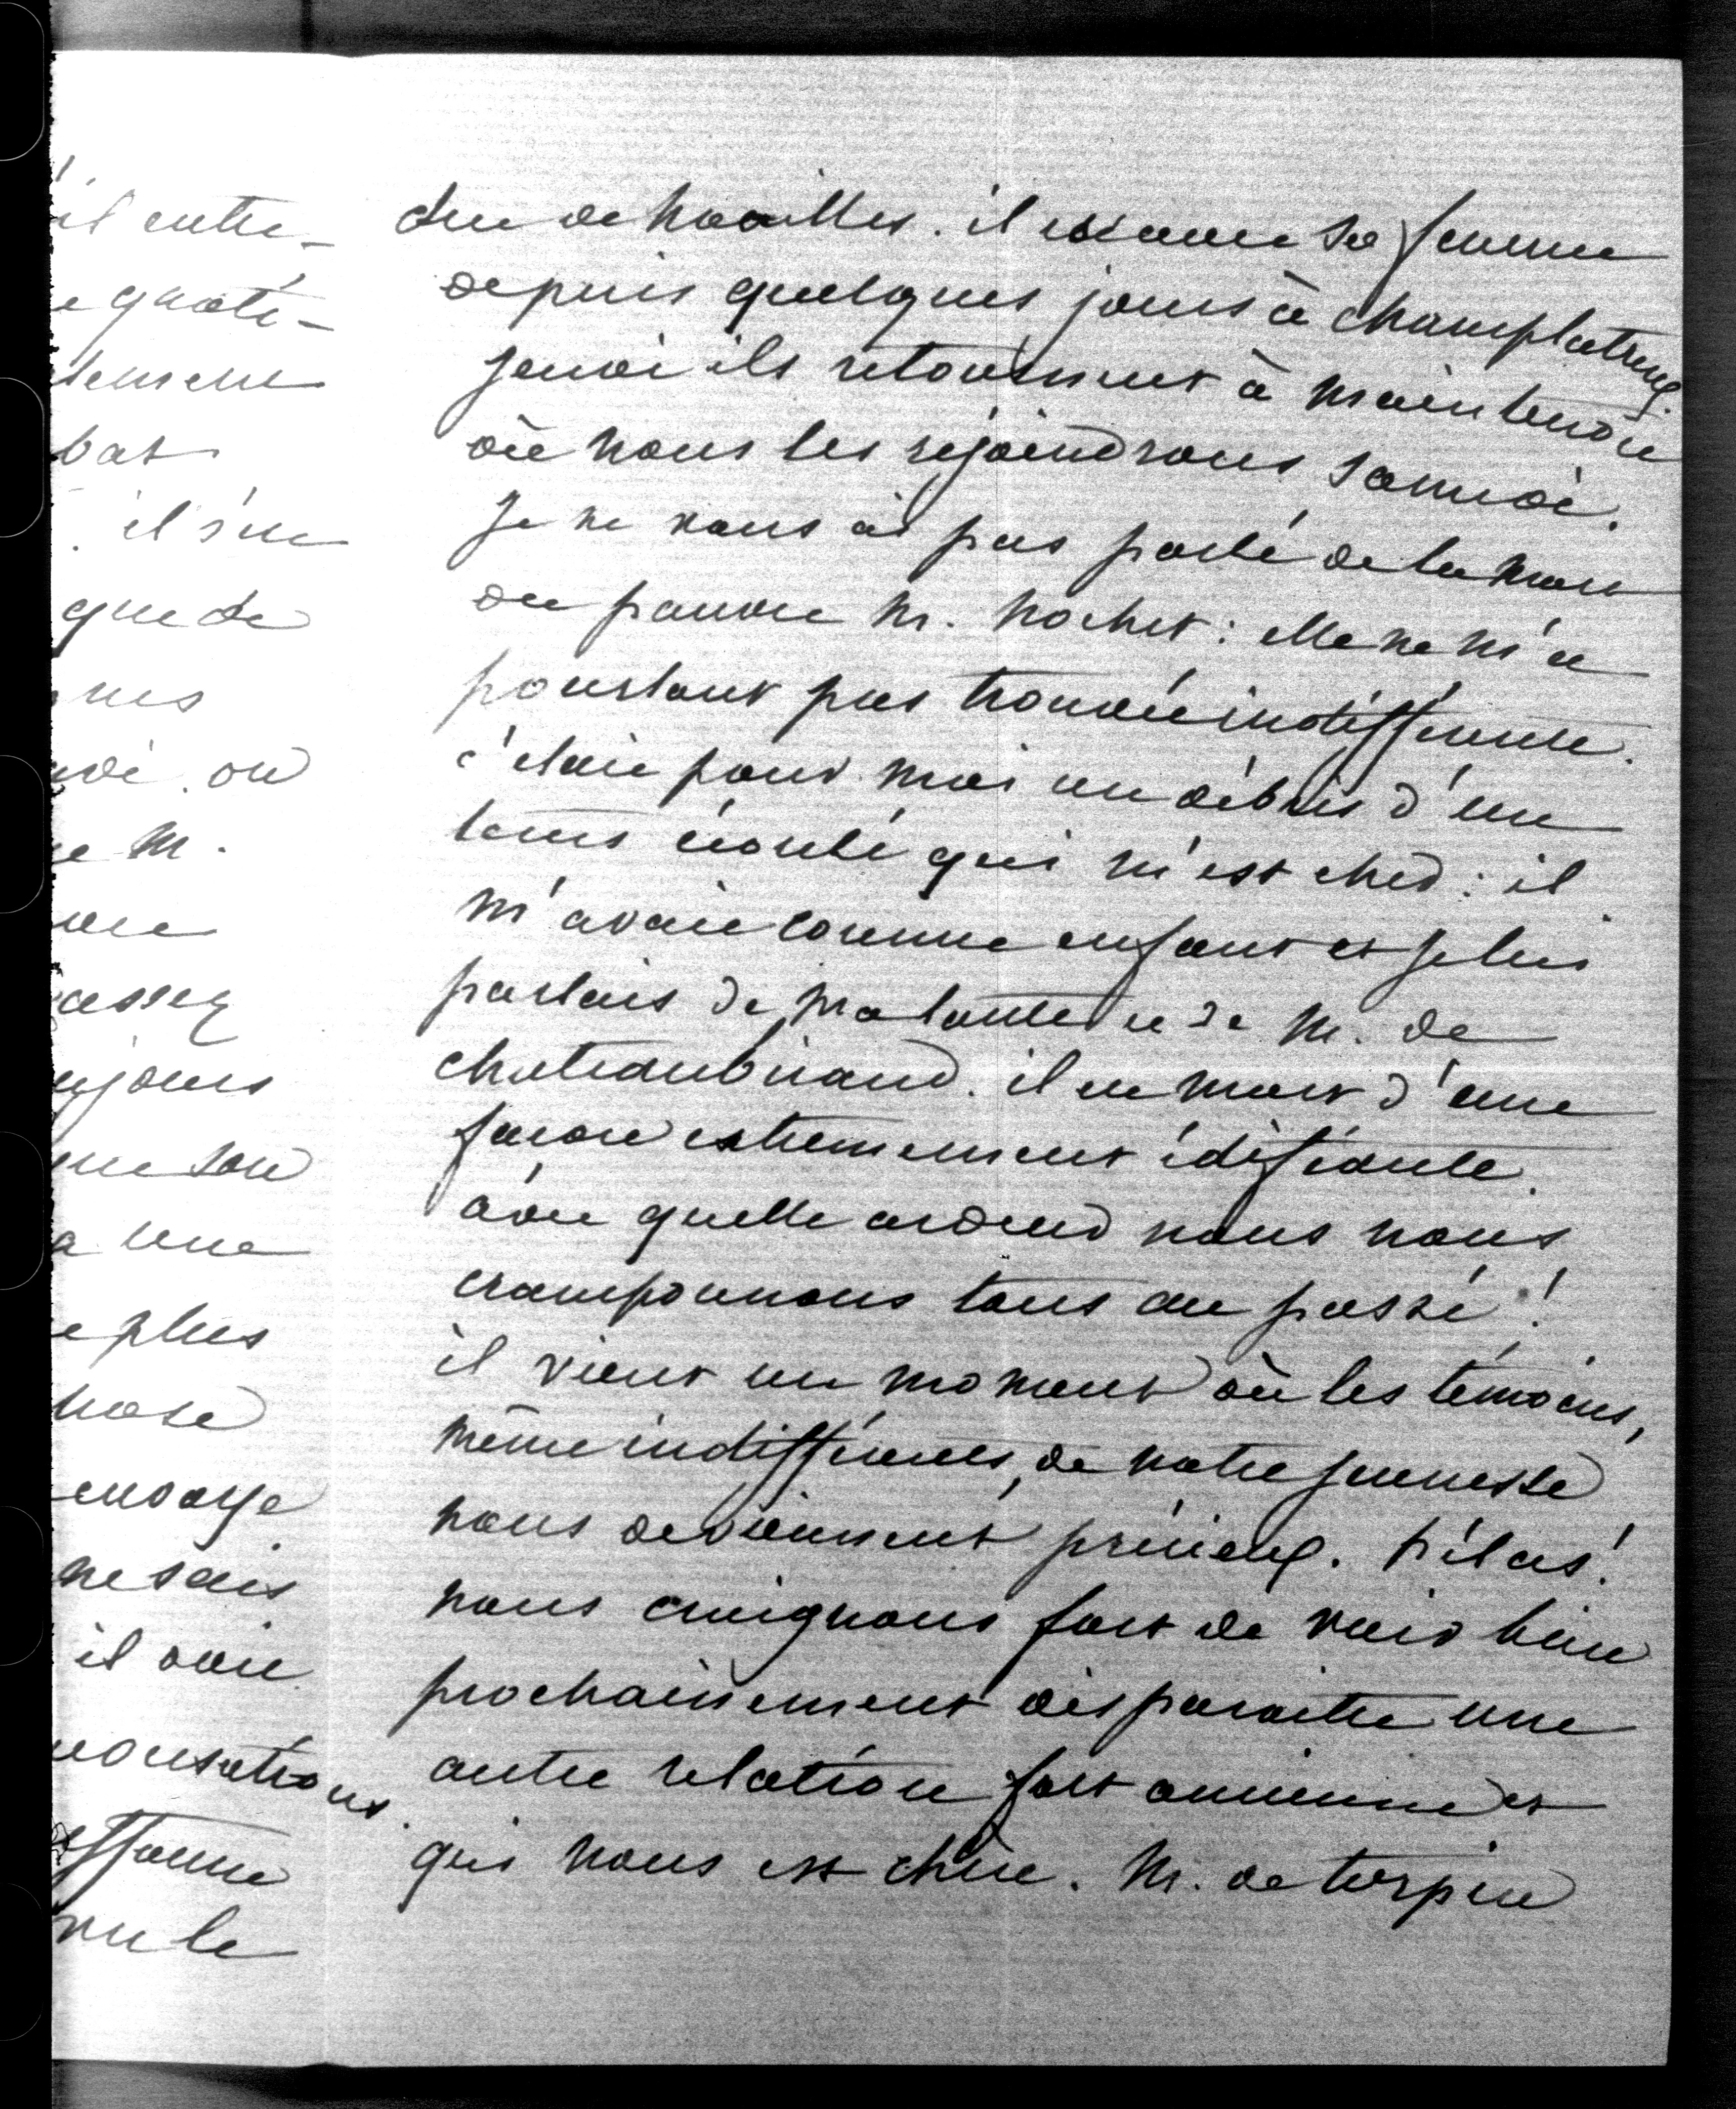 il entre-
e quoti-
bat
. il s'en
que de
nes
e M.
assez
ujours
une son
a une
e plus
hose
envoye
ne sais
il voie
vu le
duc de Noailles. il sa femme
depuis quelques jours à Champlatreux
jeudi ils retournent à Maintenon
où nous les rejoindrons samedi.
Je ne vous ai pas parlé de la mort
du pauvre M. : elle ne m'a
pourtant pas trouvée indifférente.
c'était pour moi un débris d'un
tems écoulé qui m'est cher : il
m'avait connue enfant et je lui
parlais de ma tante et de M. de
Chateaubriand. il est mort d'une
façon extremement édifiante.
avec quelle ardeur nous nous
cramponnons tous au passé !
il vient un moment où les témoins,
même indifférents, de notre jeunesse
nous deviennent précieux. hélas !
nous craignons fort de voir bien
prochainement disparaitre une
autre relation fort ancienne et
qui nous est chère. M. de Turpin